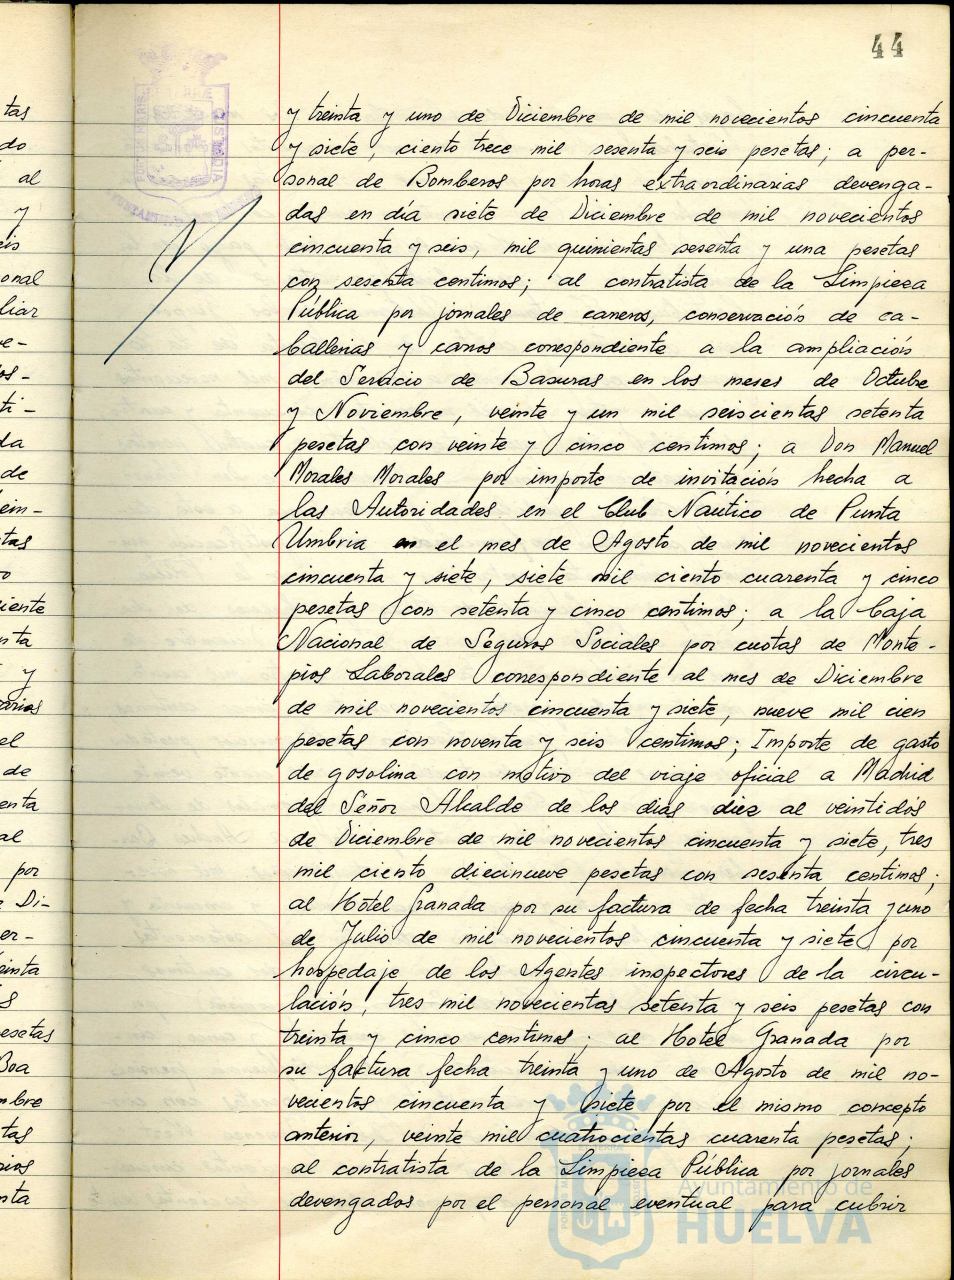 44
y treinta y uno de Diciembre de mil novecientos cincuenta
y siete, ciento trece mil sesenta y seis pesetas; a per-
sonal de Bomberos por horas extraordinarias devenga-
das en día siete de Diciembre de mil novecientos
cincuenta y seis, mil quinientas sesenta y una pesetas
con sesenta centimos; al contratista de la Limpieza
Pública por jornales de carreros, conservación de ca-
ballerias y carros correspondiente a la ampliación
del Servicio de Basuras en los meses de Octubre
y Noviembre, veinte y un mil seiscientas setenta
pesetas con veinte y cinco centimos; a Don Manuel
Morales Morales por importe de invitación hecha a
las Autoridades en el Club Naútico de Punta
Umbria en el mes de Agosto de mil novecientos
cincuenta y siete, siete mil ciento cuarenta y cinco
pesetas con setenta y cinco centimos; a la Caja
Nacional de Seguros Sociales por cuotas de Monte-
pios Laborales correspondiente al mes de Diciembre
de mil novecientos cincuenta y siete, nueve mil cien
pesetas con noventa y seis centimos; Importe de gasto
de gosolina con motivo del viaje oficial a Madrid
del Señor Alcalde de los dias diez al veintidós
de Diciembre de mil novecientos cincuenta y siete, tres
mil ciento diecinueve pesetas con sesenta centimos;
al Hotel Granada por su factura de fecha treinta y uno
de Julio de mil novecientos cincuenta y siete por
hospedaje de los Agentes inspectores de la circu-
lación, tres mil novecientas setenta y seis pesetas con
treinta y cinco centimos; al Hotel Granada por
su factura fecha treinta y uno de Agosto de mil no-
vecientos cincuenta y siete por el mismo concepto
anterior, veinte mil cuatrocientas cuarenta pesetas;
al contratista de la Limpieza Pública por jornales
devengados por el personal eventual para cubrir
Ayuntamiento de
HUELVA